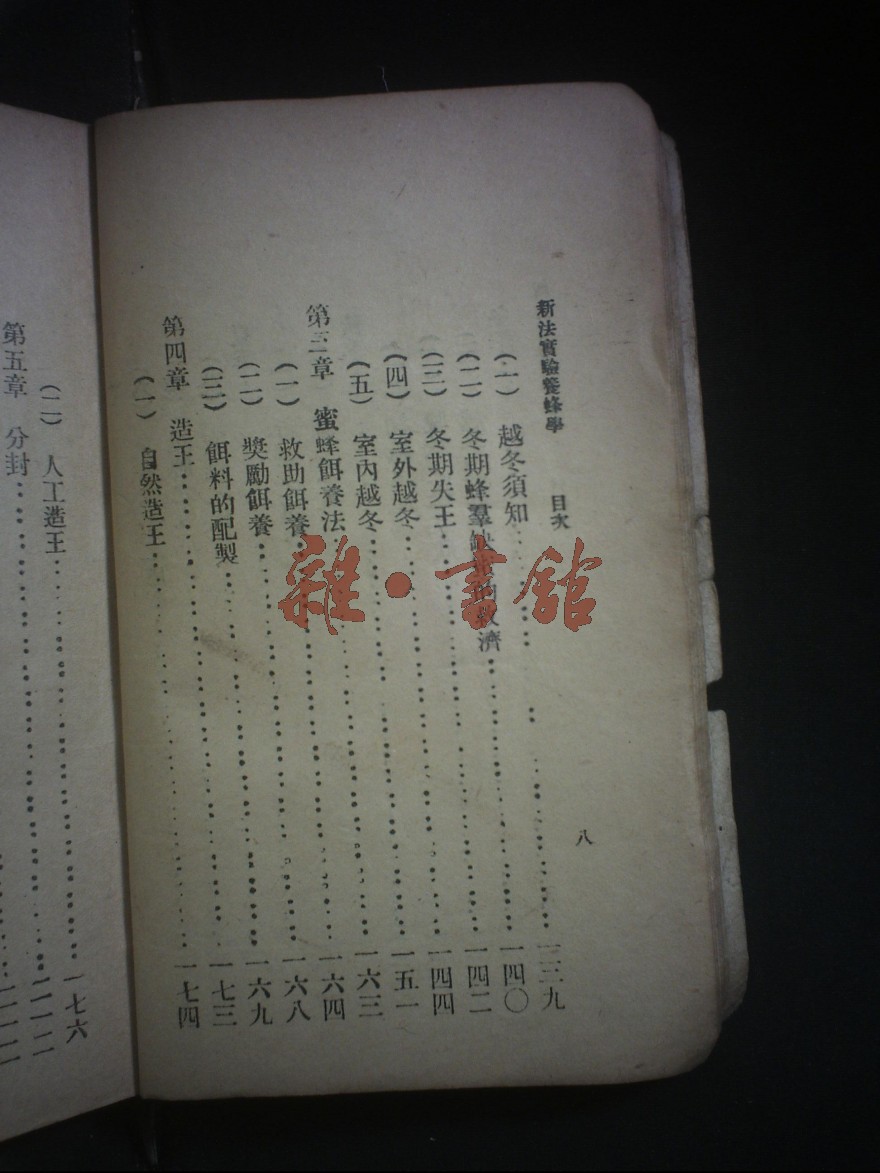 新法實驗養蜂學 目次 八
(一) 越冬須知……一三九
(二) 冬期蜂羣 的救濟……一四〇
(三) 冬期失王……一四二
(四) 室外越冬……一四四
(五) 室內越冬……一五一
第三章 蜜蜂餌養法……一六三
(一) 救助餌養……一六四
(二) 獎勵餌養……一六八
(三) 餌料的配製……一六九
第四章 造王……一七三
(一) 自然造王……一七四
(二) 人工造王……一七六
第五章 分封……
雜·書館